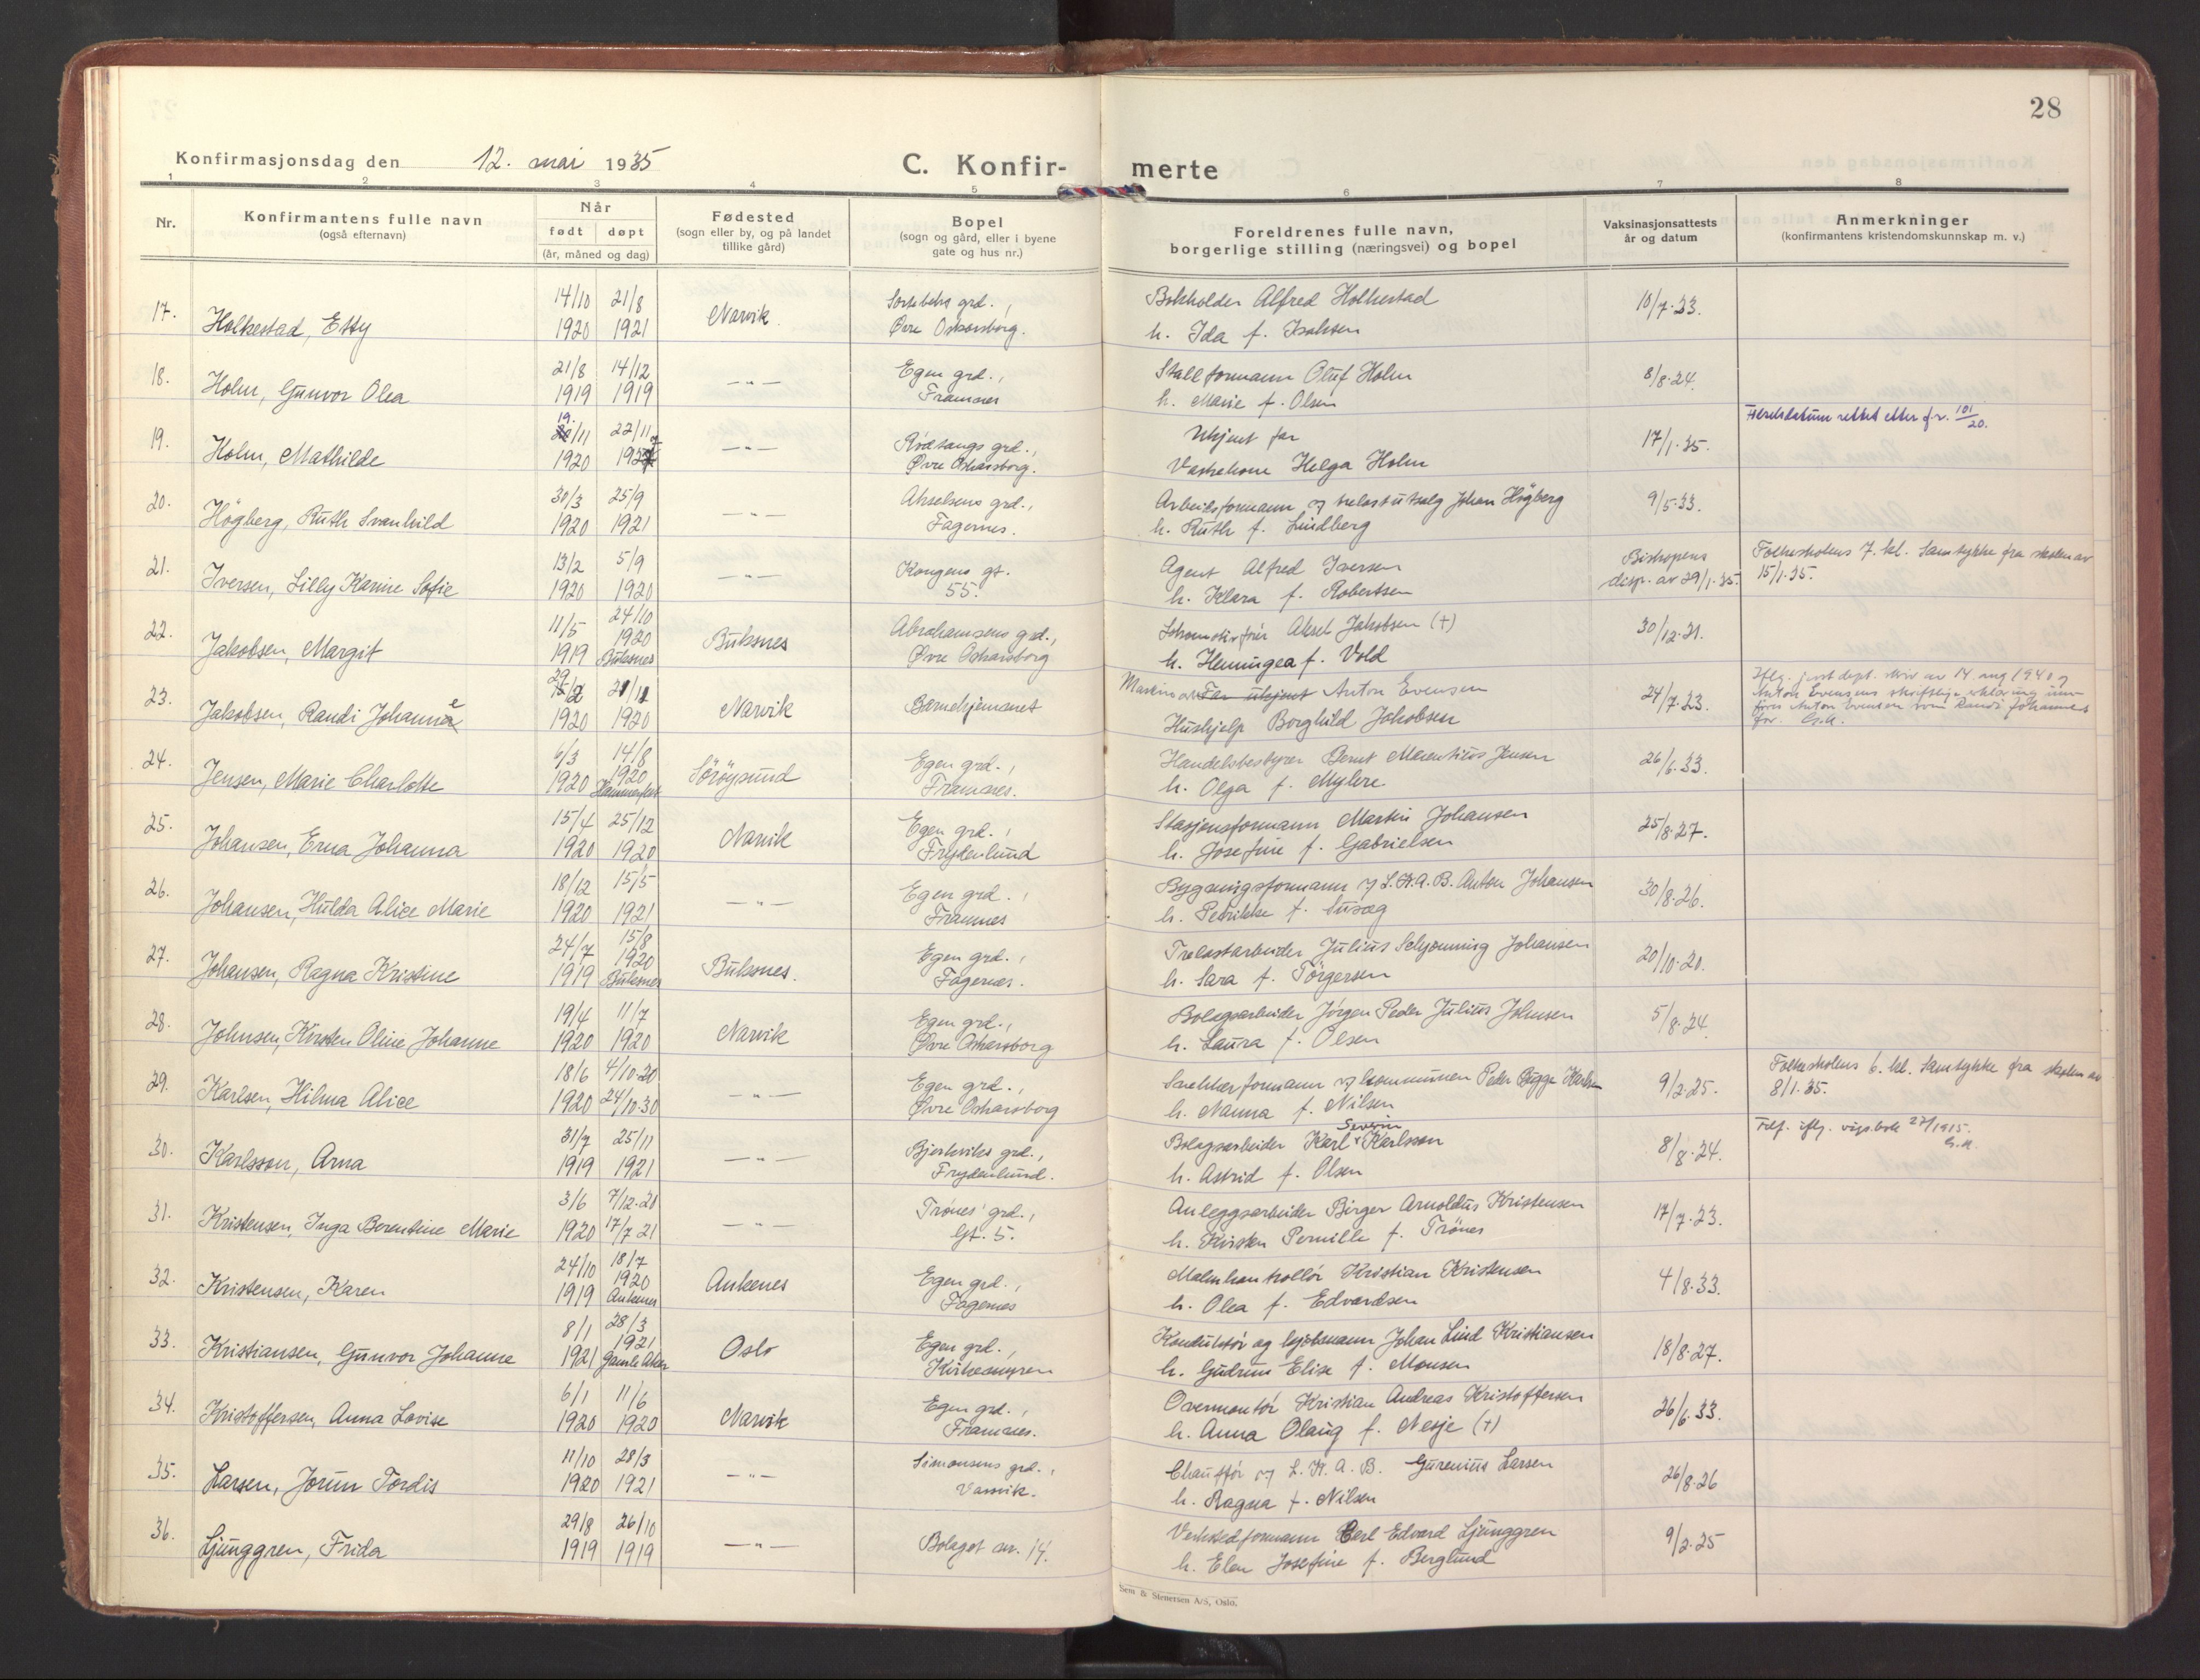 28
Konfirmasjonsdag den 12. mai 1935
C. Konfir-merte
1 2 3 4 5 6 7 8
Nr.
Konfirmantens fulle navn
(også efternavn)
Når
født døpt
(år, måned og dag)
Fødested
(sogn eller by, og på landet
tillike gård)
Bopel
(sogn og gård, eller i byene
gate og hus nr.)
Foreldrenes fulle navn,
borgerlige stilling (næringsvei) og bopel
Vaksinasjonsattests
år og datum
Anmerkninger
(konfirmantens kristendomskunnskap m. v.)
17. 14/10 21/8 grd., Bokholder Alfred Holkestad 10/7-33.
Holkestad, Etty 1920 1921 Narvik Øvre Oskarsborg. h. Ida f. Isaksen
18. 21/8 14/12 Egen grd., Stallformann Oluf Holm 8/8-24.
Holm, Gunvor Olea 1919 1919 —"— Framnes h. Marie f. Olsen
Fødselsdatum rettet efter f.r. 101/20.
19. 19/11 22/11 Rødsangs grd., Ukjent far 17/1-35.
Holm, Mathilde 1920 —"— Øvre Oskarsborg. Vaskekone Helga Holm
20. 30/3 25/9 Akselsens grd., Arbeidsformann v/ trelastutsalg Johan Högberg 9/5-33.
Högberg, Ruth Svanhild 1920 1921 —"— Fagernes. h. Ruth f. Lindberg
21. 13/2 5/9 Kongens gt. Agent Alfred Iversen Bishopens Folkeskolens 7. kl. Samtykke fra skolen av
Iversen, Lilly Karine Sofie 1920 1920 —"— 55. h. Klara f. Robertsen disp. av 29/1-35. 15/1-35.
22. 11/5 24/10 1920 Abrahamsens grd., Lokomotivfører Aksel Jakobsen (+) 30/12-21.
Jakobsen, Margit 1919 Buksnes Buksnes Øvre Oskarsborg h. Henningea f. Vold
23. 29/2 21/11 Maskinarb. Far ukjent Anton Evensen 24/7-23. Iflg. just.dept. skriv av 14. aug 1940 og
Anton Evensens skriftlige erklæring inn-
føres Anton Evensen som Randi Johannes
far. G.A.
Jakobsen, Randi Johanne 1920 1920 Narvik Barnehjemmet Hushjelp Borghild Jakobsen
24. 6/3 14/8 1920 Egen grd., Handelsbestyrer Bernt Jensen 26/6-33.
Jensen, Marie Charlotte 1920 Hammerfest Sörøysund Framnes. h. Olga f. Myhre
25. 15/4 25/12 Egen grd., Stasjonsformann Martin Johansen 25/8-27.
Johansen, Erna Johanna 1920 1920 Narvik Frydenlund h. Josefine f. Gabrielsen
26. 18/12 15/5 Egen grd., Bygningsformann v/ L.K.A.B. Anton Johansen 30/8-26.
Johansen, Hulda Alice Marie 1920 1921 —"— Framnes h. Petrikke f.
27. 24/7 15/8 1920 Egen grd., Trelastarbeider Julius Schjønning Johansen 20/10-20.
Johansen, Ragna Kristine 1919 Buksnes Buksnes. Fagernes. h. Sara f. Törgersen
28. 19/4 11/7 Egen grd., Bolagsarbeider Jörgen Peder Julius Johnsen 5/8-24
Johnsen, Kirsten Oline Johanne 1920 1920 Narvik Øvre Oskarsborg h. Laura f. Olsen
29. 18/6 4/10-20 Egen grd., Snekkerformann v/ kommunen Peder Bugge Karlsen 9/2-25. Folkeskolens 6. kl. Samtykke fra skolen av
Karlsen, Hilma Alice 1920 24/10-30 —"— Øvre Oskarsborg h. Nanna f. Nilsen 8/1-35.
30. 31/7 25/11 Bjerkviks grd., Bolagsarbeider Karl Severin Karlsson 8/8-24. Tilf. iflg. vigs.bok 27/1915. G.A.
Karlsson, Arna 1919 1921 —"— Frydenlund. h. Astrid f. Olsen
31. 3/6 7/12-20 Trönes' grd., Anleggsarbeider Birger Arnoldus Kristensen 17/7-23.
Kristensen, Inga Berentine Marie 1920 17/7 21 —"— Gt. 5. h. Kirsten Pernille f. Trönes
32. 24/10 18/7 1920 Egen grd., Malmkontrollör Kristian Kristensen 4/8-33.
Kristensen, Karen 1919 Ankenes Ankenes Fagernes h. Olea f. Edvardsen
33. 8/1 28/3 1921 Egen grd., Konduktör og kjöbmann Johan Lind Kristiansen 18/8-27.
Kristiansen, Gunvor Johanne 1921 Gamle Aker Oslo Kirkemyren h. Gudrun Elise f. Monsen
34. 6/1 11/6 Egen grd., Overmontör Kristian Andreas Kristoffersen 26/6-33.
Kristoffersen, Anna Lovise 1920 1920 Narvik Framnes. h. Anna Olaug f. Nesje (+)
35. 11/10 28/3 Simonsens grd., Chauffør v/ L.K.A.B. Gurenius Larsen 26/8-26
Larsen, Jorun Tordis 1920 1921 —"— Vassvik. h. Ragna f. Nilsen
36. 29/8 26/10 Verkstedformann Carl Edvard Ljunggren 9/2-25
Ljunggren, Frida 1919 1919 —"— Bolaget nr. 14. h. Elen Josefine f. Berglund
Sem & Stenersen A/S, Oslo.